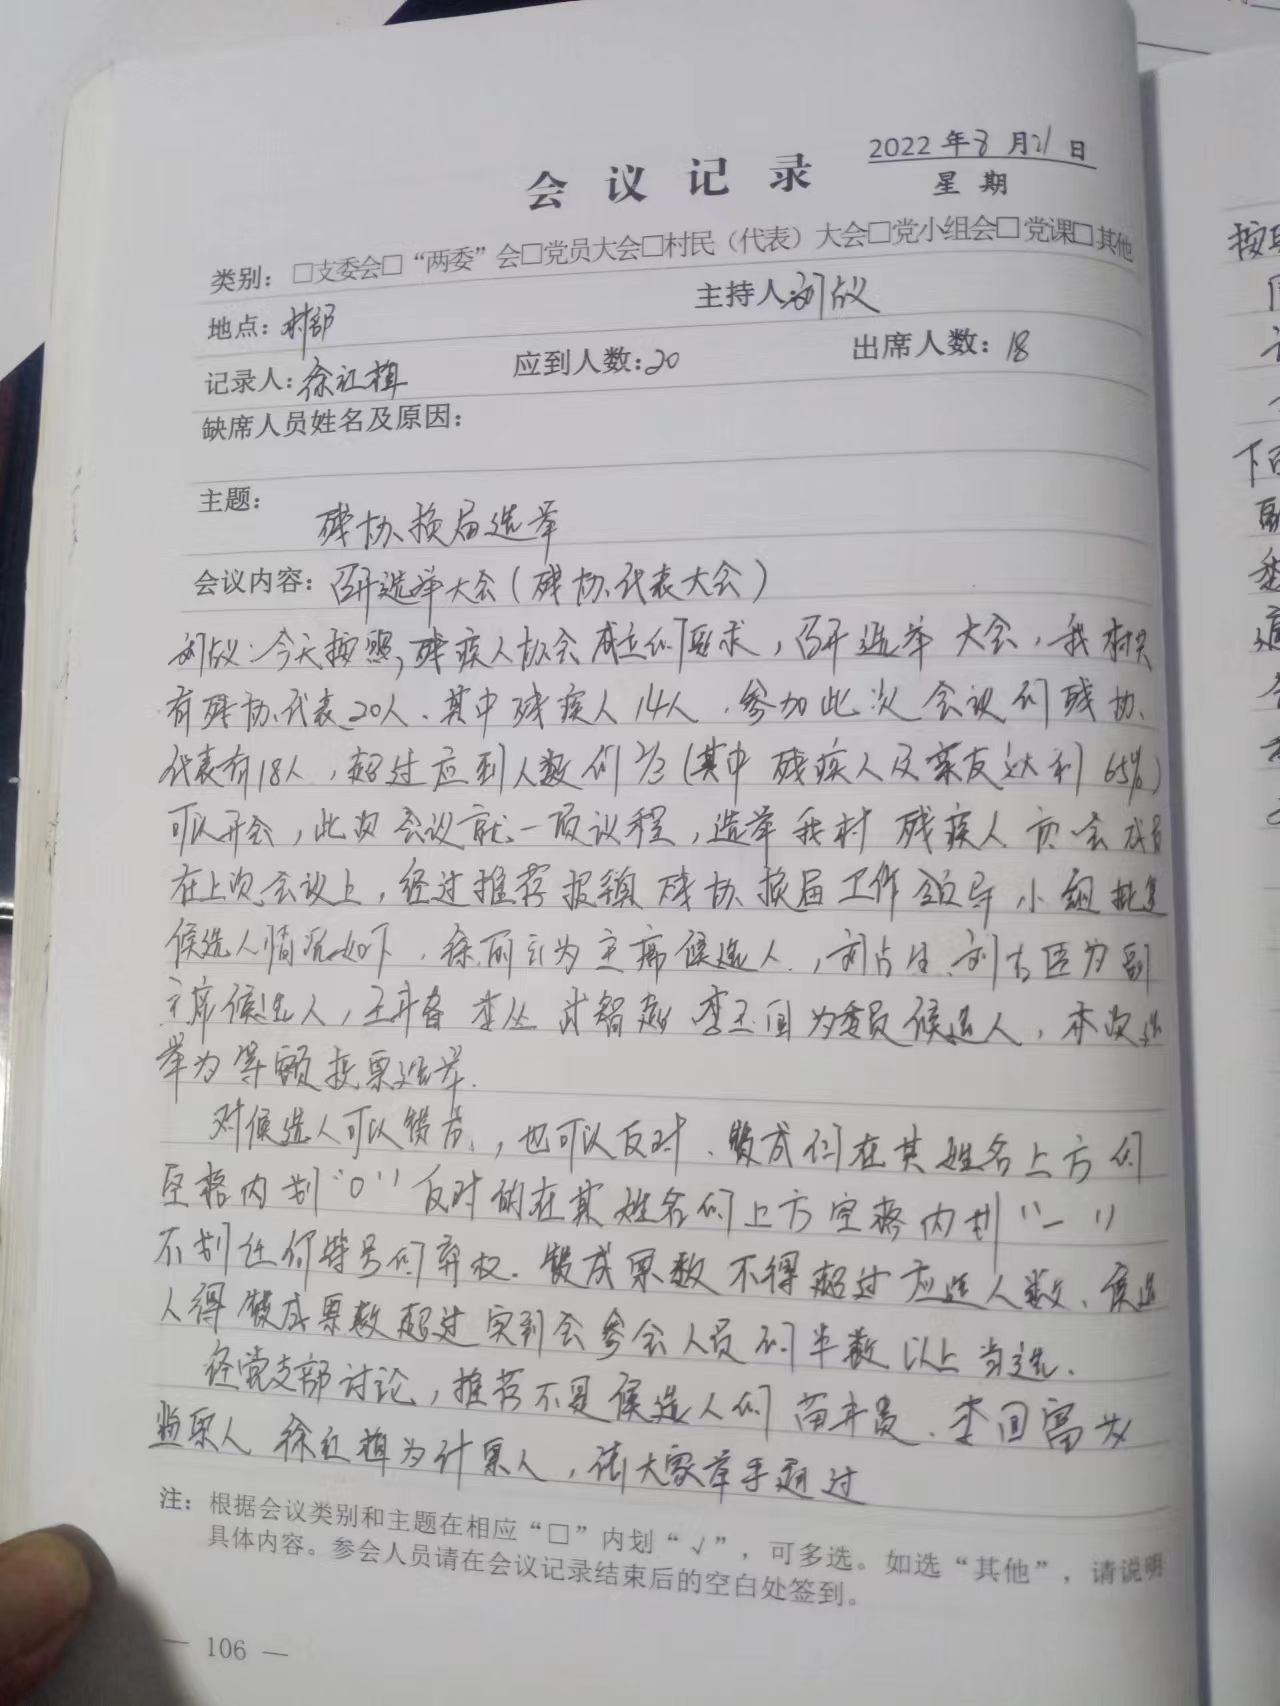 2022年8月21日
会议记录
星期
类别：□支委会□“两委”会□党员大会□村民（代表）大会□党小组会□党课□其他
地点：村部 主持人：刘议
记录人：徐红植 应到人数：20 出席人数：18
缺席人员姓名及原因：
主题：
残协换届选举
会议内容：召开选举大会（残协代表大会）
刘议：今天按照，残疾人协会成立的要求，召开选举大会，我村共
有残协代表20人、其中残疾人14人，参加此次会议的残协
代表有18人，超过应到人数的2/3（其中残疾人及亲友达到65%）
可以开会，此次会议就一项议程，选举我村残疾人协会成员
在上次会议上，经过推荐报镇残协换届工作领导小组批复
候选人情况如下，徐丽为主席候选人，刘占生、刘为副
主席候选人，李丛 武智超 李玉为委员候选人，本次选
举为等额投票选举.
对候选人可以赞成，也可以反对、赞成的在其姓名上方的
空格内划“O”反对的在其姓名的上方空格内划“—”
不划任何符号的弃权.赞成票数不得超过应选人数、候选
人得赞成票数超过实到会参会人员的半数以上当选.
经党支部讨论，推荐不是候选人的苗、李国富为
监票人 徐红植为计票人，请大家举手通过
注：根据会议类别和主题在相应“□”内划“√”，可多选。如选“其他”，请说明
具体内容。参会人员请在会议记录结束后的空白处签到。
— 106 —